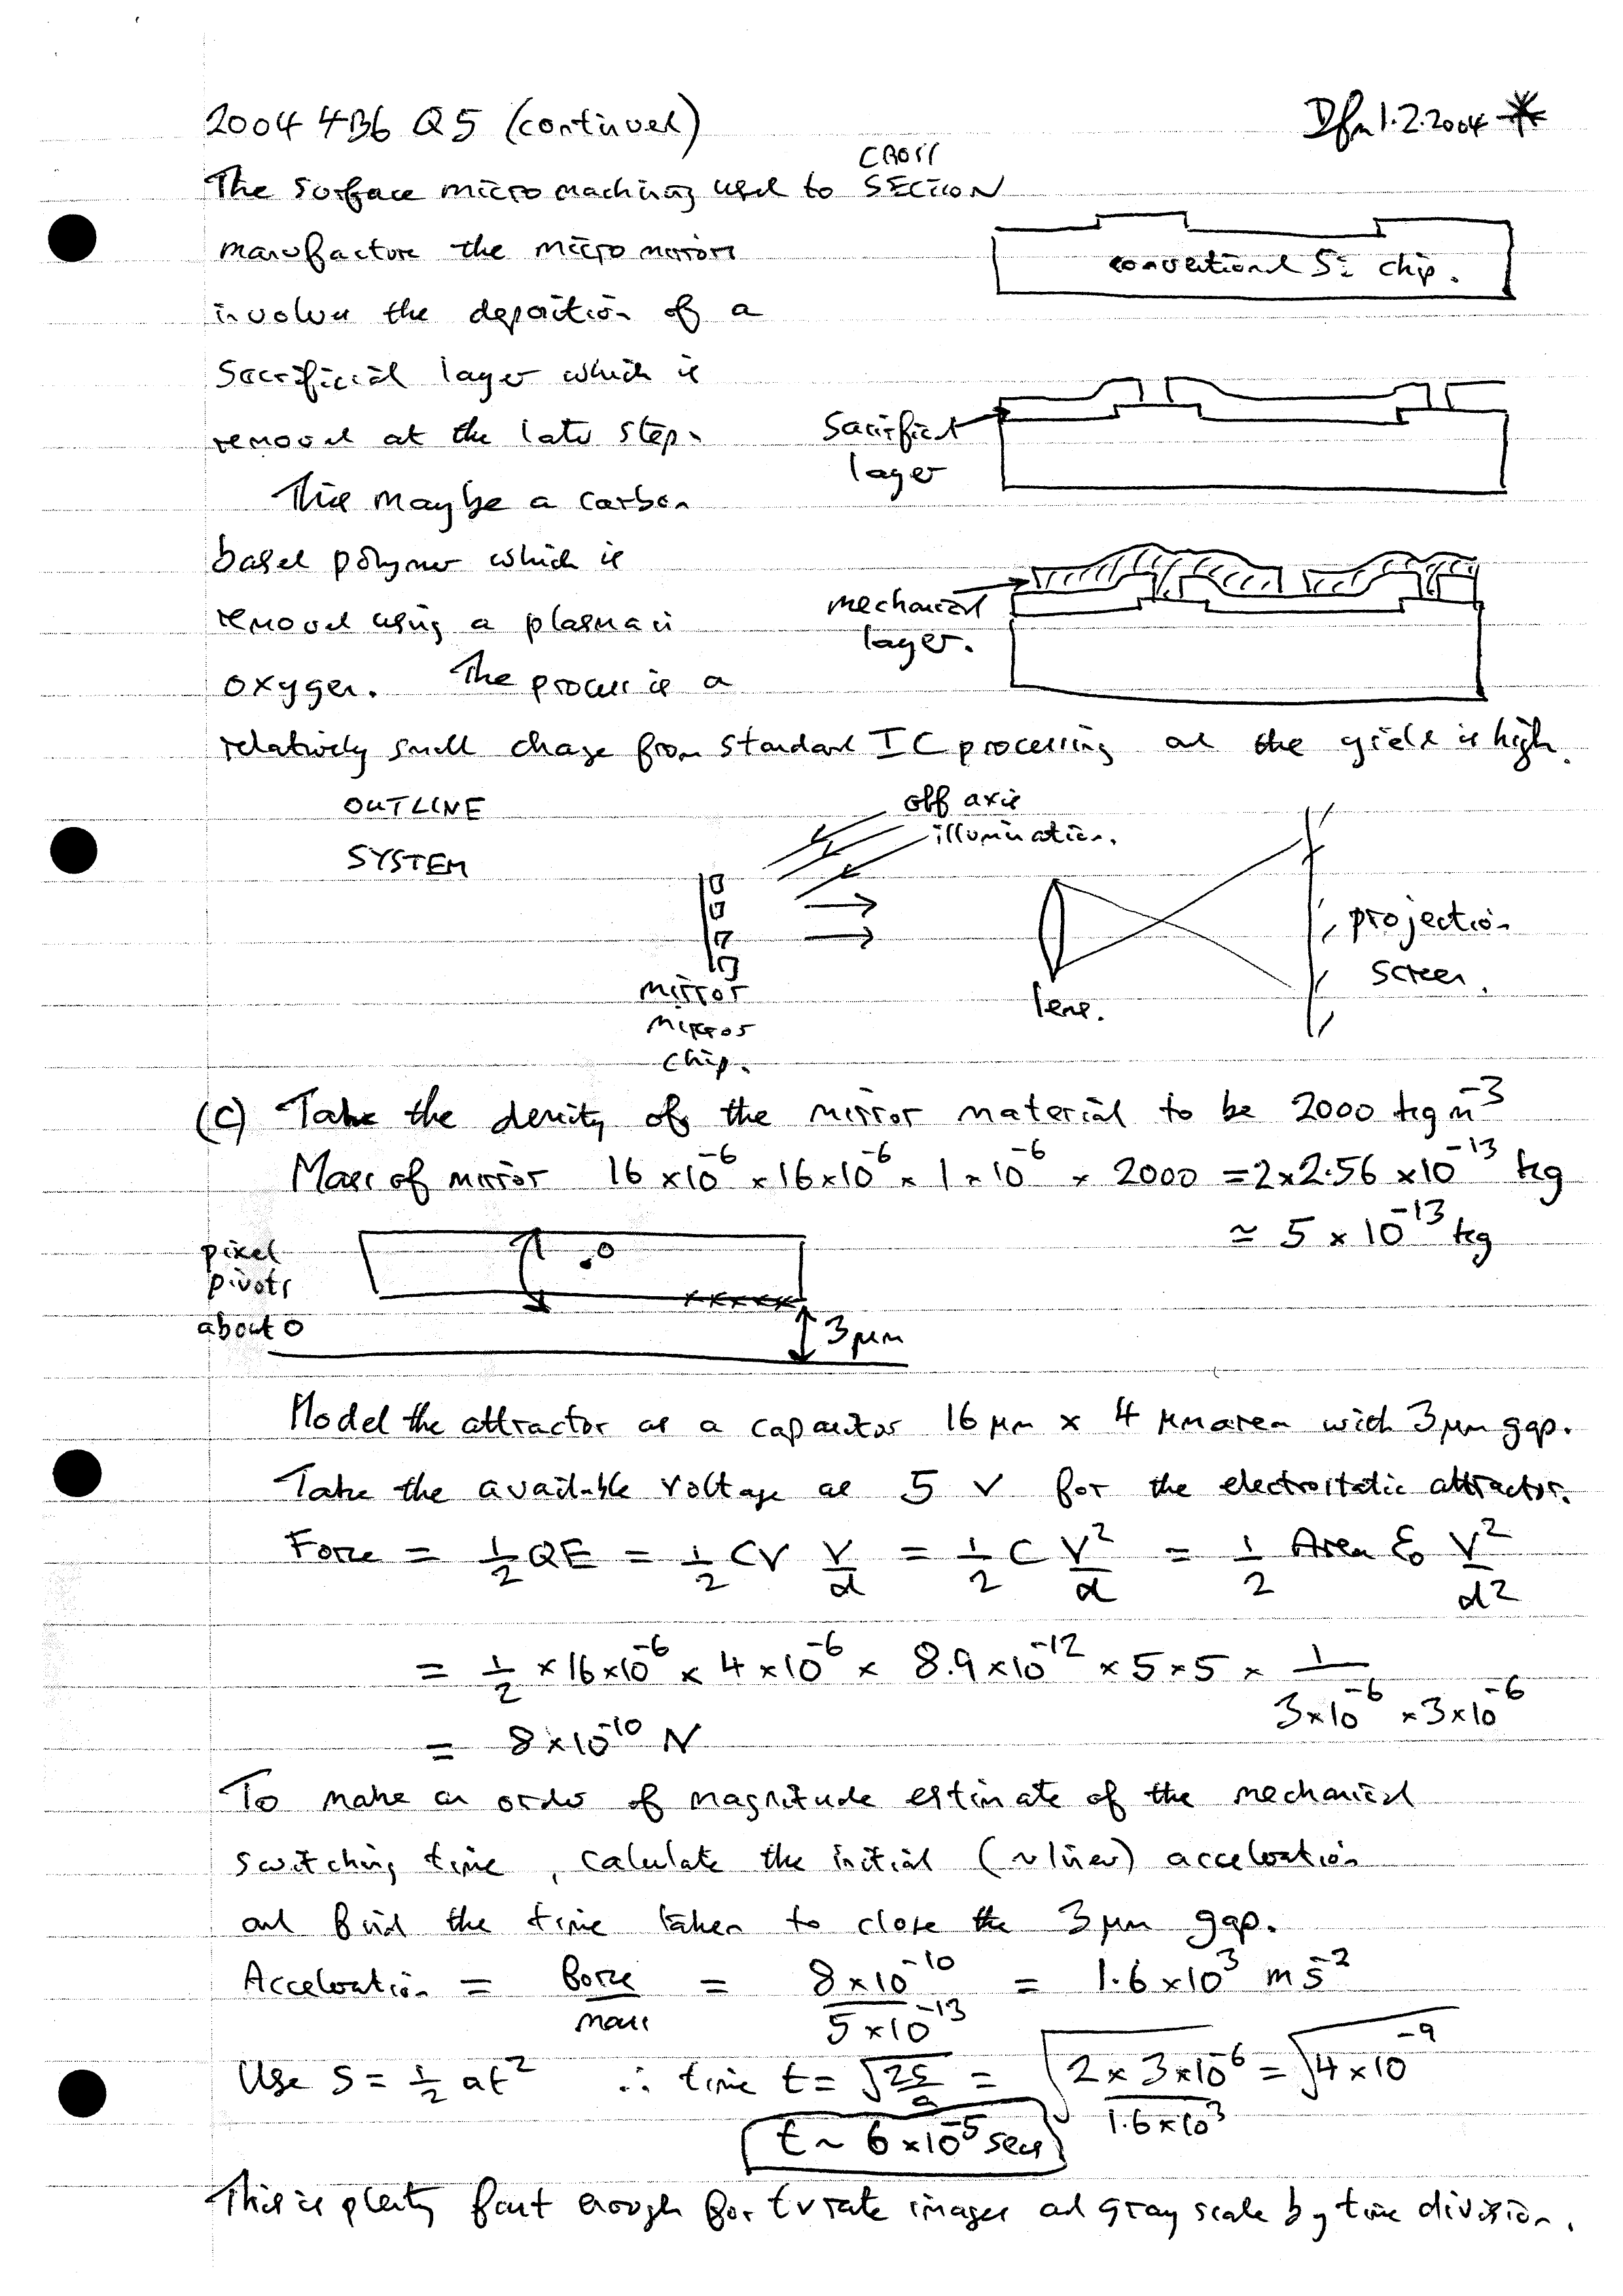 2004 4B6 Q5 (continued)
Dfm 1.2.2004 *
The surface micromachining used to
CROSS
SECTION
manufacture the micromirrors
involves the deposition of a
sacrificial layer which is
removed at the late step.
This maybe a carbon
based polymer which is
removed using a plasma in
oxygen. The process is a
relatively small change from standard IC processing and the yield is high.
conventional Si chip.
sacrificial
layer
mechanical
layer.
OUTLINE
SYSTEM
off axis
illumination.
mirror
chip.
lens.
projection
screen.
(c) Take the density of the mirror material to be 2000 kg m⁻³
Mass of mirror 16 x10⁻⁶ x 16x10⁻⁶ x 1 x 10⁻⁶ x 2000 = 2 x 2.56 x10⁻¹³ kg
≃ 5 x 10⁻¹³ kg
pixel
pivots
about O
O
3 µm
Model the attractor as a capacitor 16 µm x 4 µm area with 3 µm gap.
Take the available voltage as 5 V for the electrostatic attractor.
Force = 1/2 QE = 1/2 CV V/d = 1/2 C V²/d = 1/2 Area ε₀ V²/d²
= 1/2 x 16x10⁻⁶ x 4x10⁻⁶ x 8.9x10⁻¹² x 5x5 x 1/(3x10⁻⁶ x 3x10⁻⁶)
= 8x10⁻¹⁰ N
To make an order of magnitude estimate of the mechanical
switching time, calculate the initial (~linear) acceleration
and find the time taken to close the 3 µm gap.
Acceleration = force/mass = 8x10⁻¹⁰/5x10⁻¹³ = 1.6x10³ m s⁻²
Use S = 1/2 at² ∴ time t = √(2S/a) = √(2 x 3x10⁻⁶/1.6x10³) = √(4x10⁻⁹)
t ~ 6x10⁻⁵ secs
This is plenty fast enough for tv rate images and gray scale by time division.